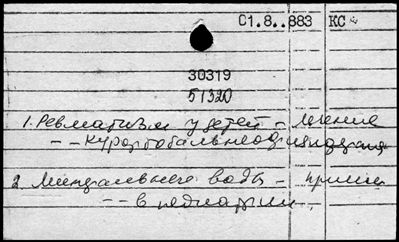 01.8..883 КС
30319
51320
1. Ревматизм у детей - лечение
-- курортобальнеология педиатр.
2. Минеральные воды - прием
-- в педиатрии.